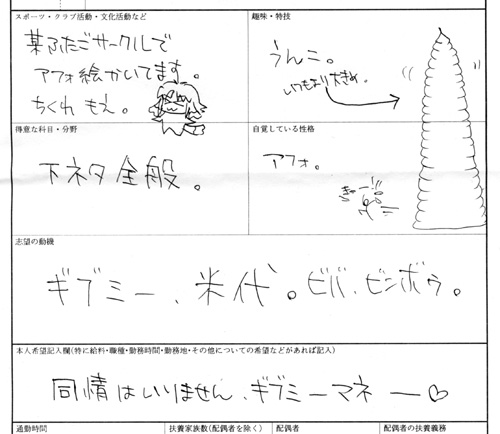 スポーツ・クラブ活動・文化活動など
某ふたごサークルで
アフォ絵かいてます。
ちくれ もえ。
趣味・特技
うんこ。
いつもより大きめ。
得意な科目・分野
下ネタ全般。
自覚している性格
アフォ。
きゃー
志望の動機
ギブミー、米代。ビバ、ビンボウ。
本人希望記入欄(特に給料・職種・勤務時間・勤務地・その他についての希望などがあれば記入)
同情はいりません、ギブミーマネー♡
通勤時間
扶養家族数(配偶者を除く)
配偶者
配偶者の扶養義務